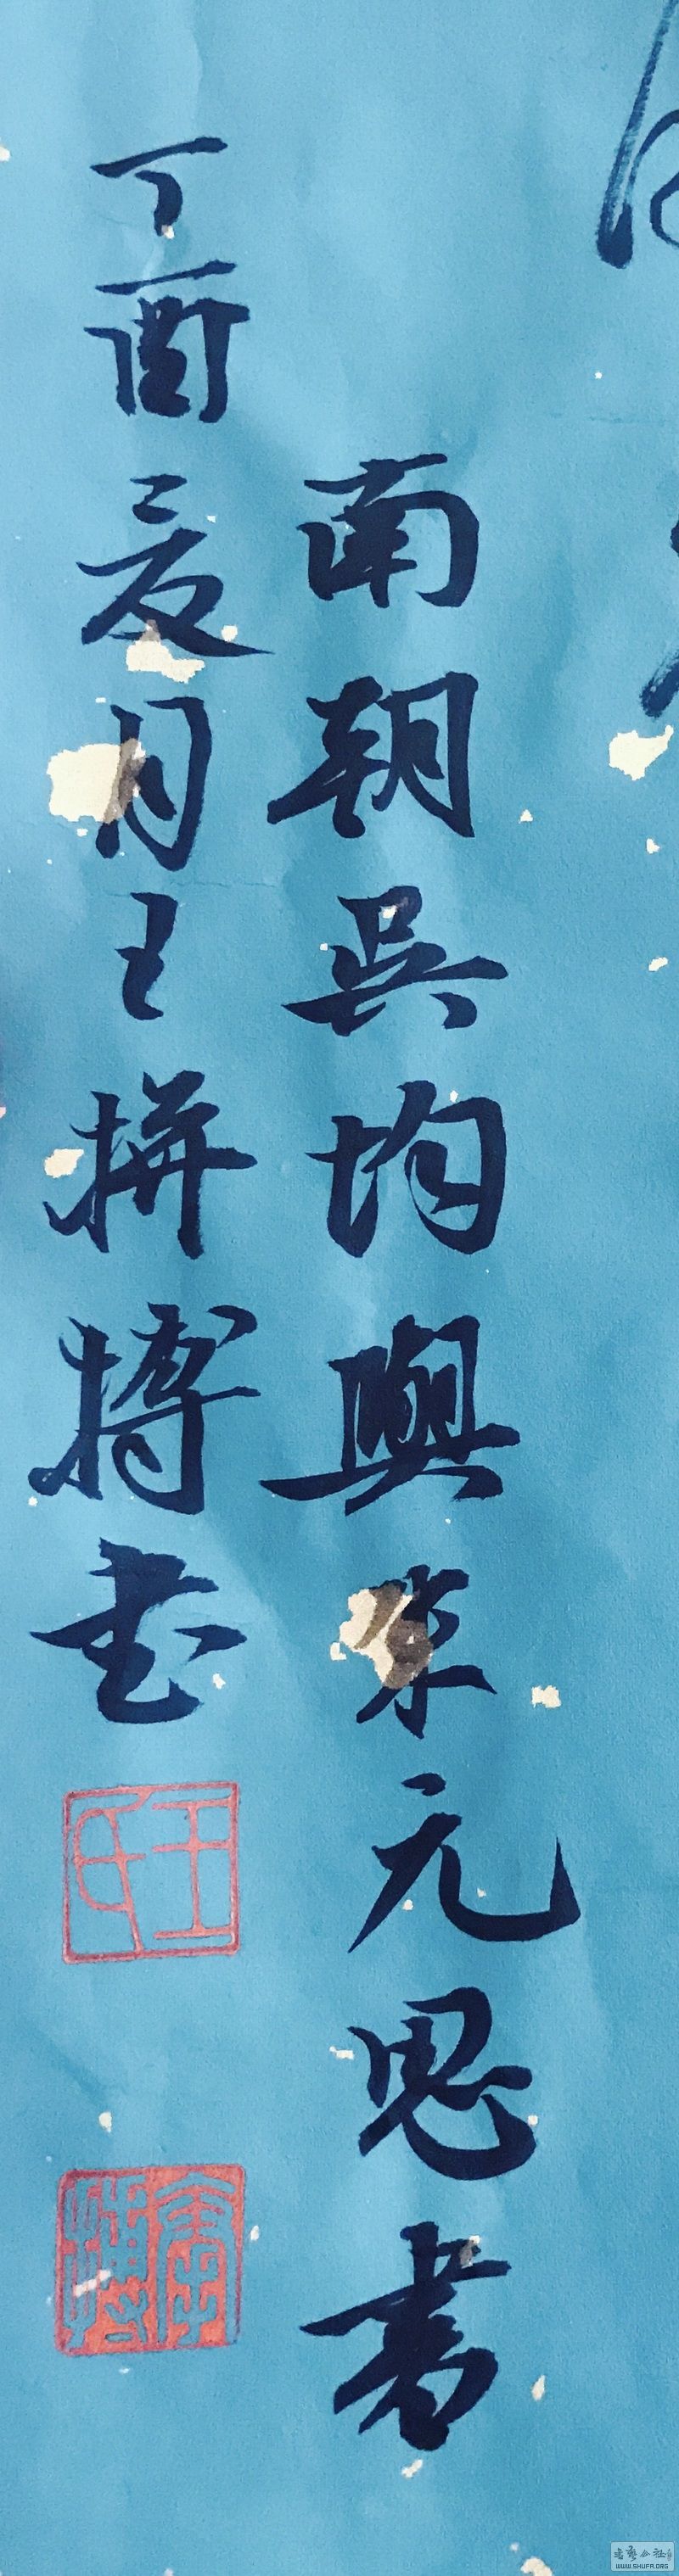 南朝吳均與朱元思書
丁酉夏月王拼搏書
王氏
拼搏
WWW.SHUFA.ORG